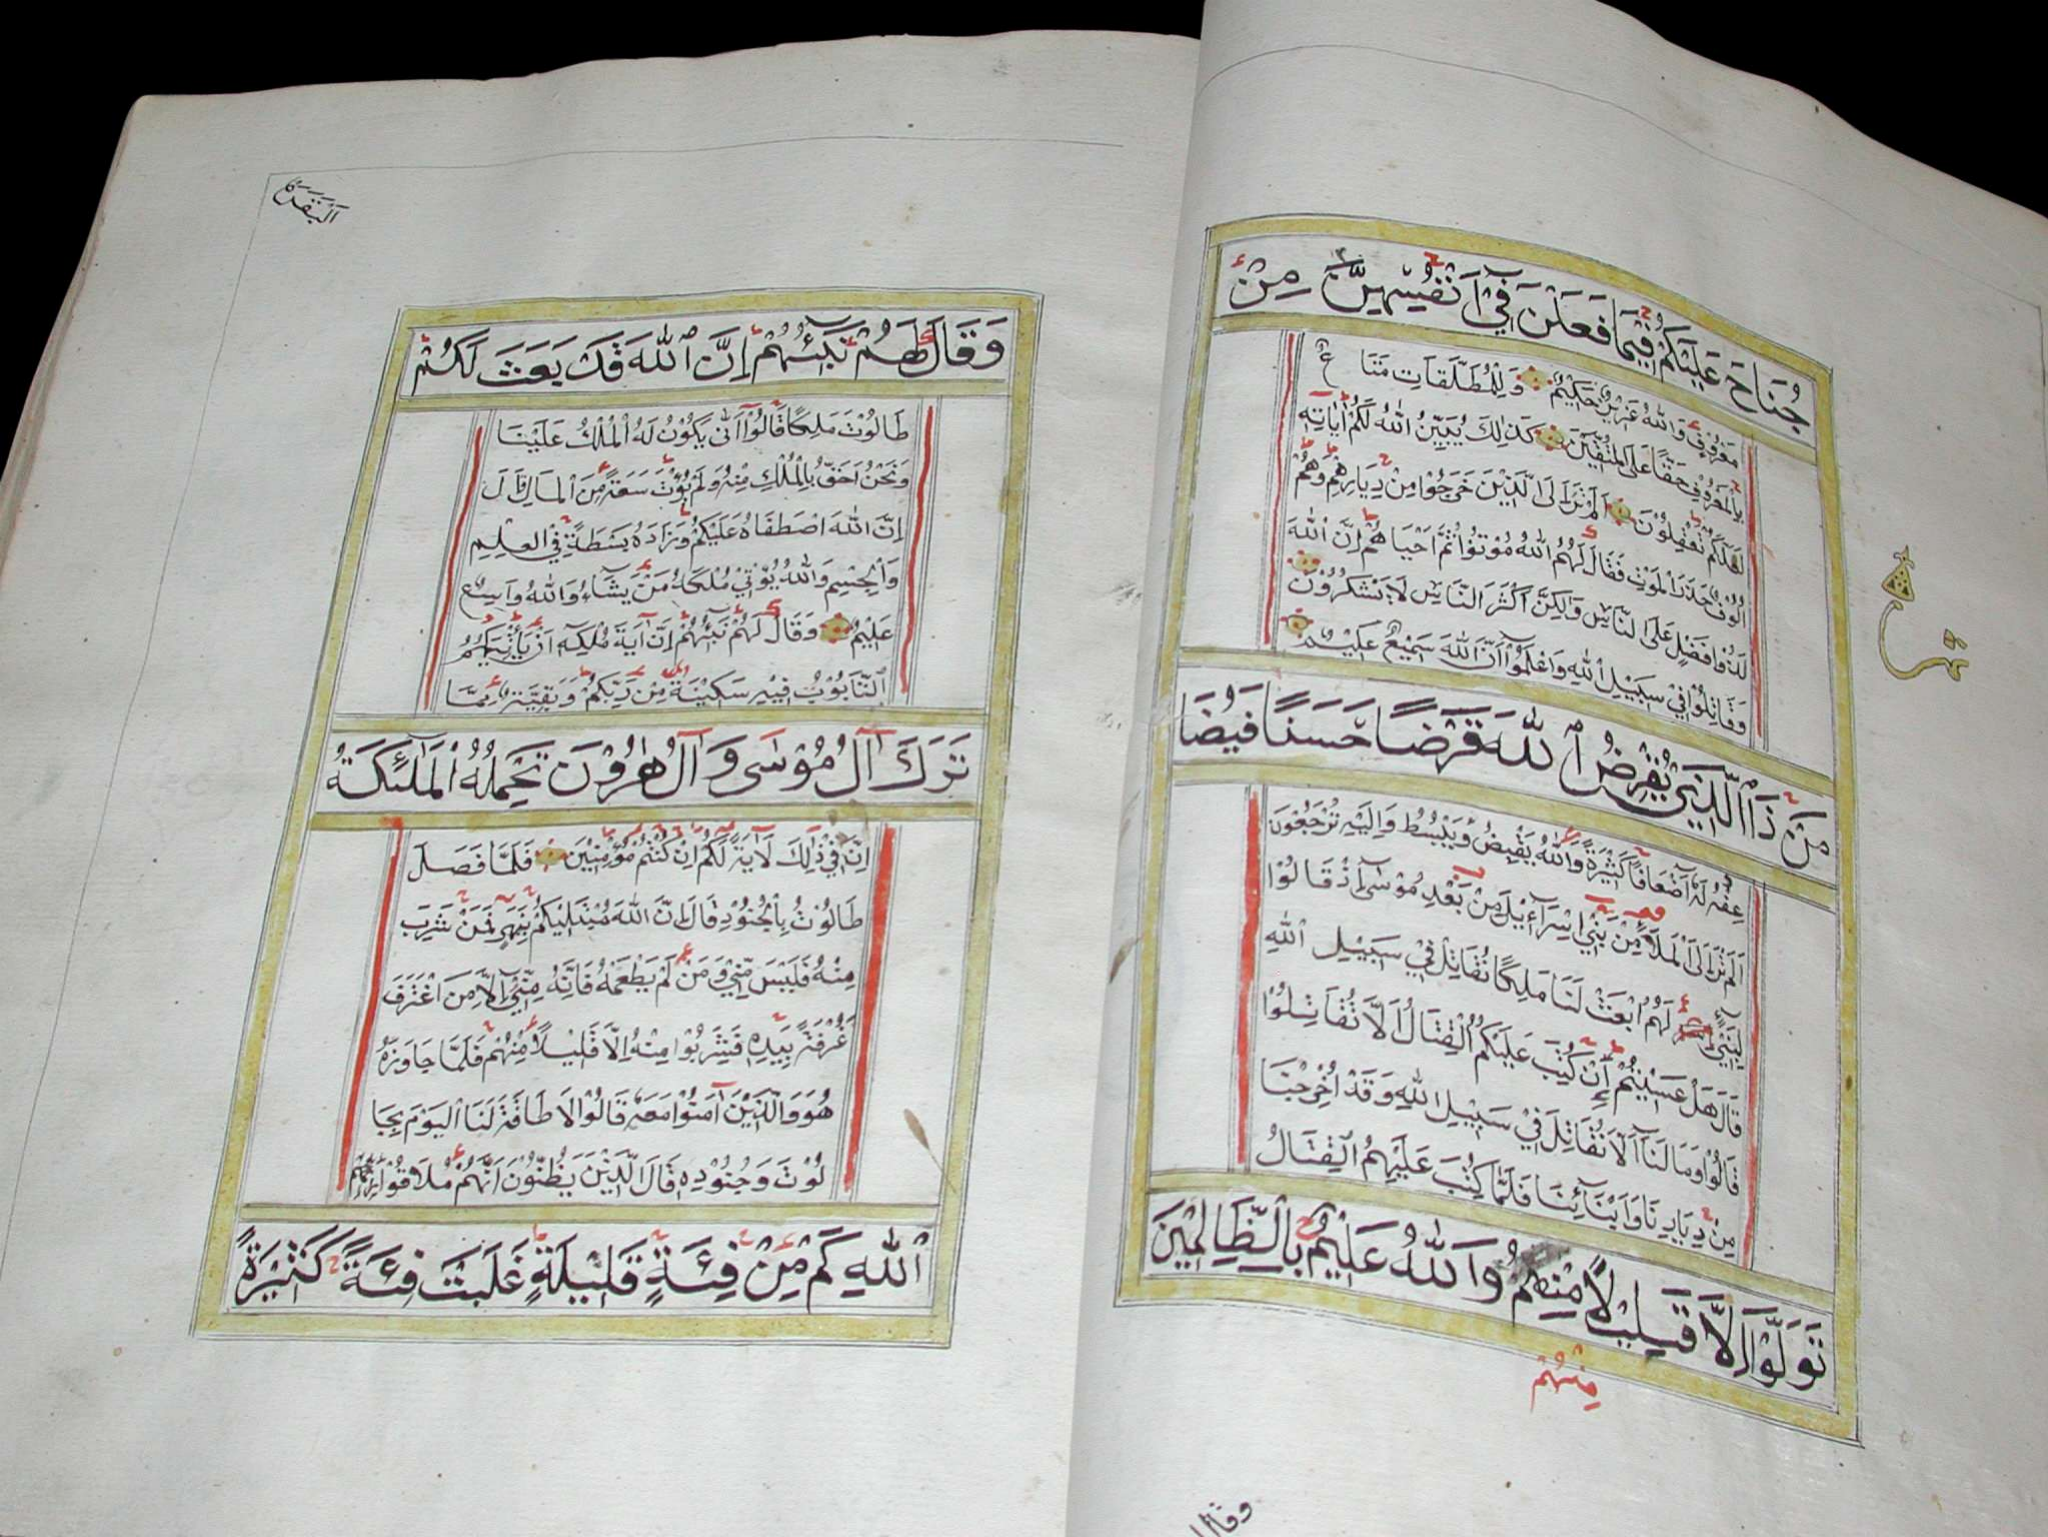 جُنَاحَ عَلَيْكُمْ فِيْمَا فَعَلْنَ فِيْ اَنْفُسِهِنَّ مِنْ
مَعْرُوْفٍ وَاللهُ عَزِيْزٌ حَكِيْمٌ وَلِلْمُطَلَّقَاتِ مَتَاعٌ
بِالْمَعْرُوْفِ حَقًّا عَلَى الْمُتَّقِيْنَ كَذٰلِكَ يُبَيِّنُ اللهُ لَكُمْ اٰيَاتِهٖ
لَعَلَّكُمْ تَعْقِلُوْنَ اَلَمْ تَرَ اِلَى الَّذِيْنَ خَرَجُوْا مِنْ دِيَارِهِمْ وَهُمْ
اُلُوْفٌ حَذَرَ الْمَوْتِ فَقَالَ لَهُمُ اللهُ مُوْتُوْا ثُمَّ اَحْيَاهُمْ اِنَّ اللهَ
لَذُوْ فَضْلٍ عَلَى النَّاسِ وَلٰكِنَّ اَكْثَرَ النَّاسِ لَا يَشْكُرُوْنَ
وَقَاتِلُوْا فِيْ سَبِيْلِ اللهِ وَاعْلَمُوْا اَنَّ اللهَ سَمِيْعٌ عَلِيْمٌ
مَنْ ذَا الَّذِيْ يُقْرِضُ اللهَ قَرْضًا حَسَنًا فَيُضَا
عِفُهٗ لَهٗ اَضْعَافًا كَثِيْرَةً وَاللهُ يَقْبِضُ وَيَبْسُطُ وَاِلَيْهِ تُرْجَعُوْنَ
اَلَمْ تَرَ اِلَى الْمَلَاِ مِنْ بَنِيْ اِسْرَآئِيْلَ مِنْ بَعْدِ مُوْسٰى اِذْ قَالُوْا
لِنَبِيٍّ لَهُمُ ابْعَثْ لَنَا مَلِكًا نُقَاتِلْ فِيْ سَبِيْلِ اللهِ
قَالَ هَلْ عَسَيْتُمْ اِنْ كُتِبَ عَلَيْكُمُ الْقِتَالُ اَلَّا تُقَاتِلُوْا
قَالُوْا وَمَا لَنَا اَلَّا نُقَاتِلَ فِيْ سَبِيْلِ اللهِ وَقَدْ اُخْرِجْنَا
مِنْ دِيَارِنَا وَاَبْنَآئِنَا فَلَمَّا كُتِبَ عَلَيْهِمُ الْقِتَالُ
تَوَلَّوْا اِلَّا قَلِيْلًا مِنْهُمْ وَاللهُ عَلِيْمٌ بِالظَّالِمِيْنَ
مِنْهُمْ
اَلْبَقَرَة
وَقَالَ لَهُمْ نَبِيُّهُمْ اِنَّ اللهَ قَدْ بَعَثَ لَكُمْ
طَالُوْتَ مَلِكًا قَالُوْا اَنّٰى يَكُوْنُ لَهُ الْمُلْكُ عَلَيْنَا
وَنَحْنُ اَحَقُّ بِالْمُلْكِ مِنْهُ وَلَمْ يُؤْتَ سَعَةً مِنَ الْمَالِ قَالَ
اِنَّ اللهَ اصْطَفَاهُ عَلَيْكُمْ وَزَادَهُ بَسْطَةً فِي الْعِلْمِ
وَالْجِسْمِ وَاللهُ يُؤْتِيْ مُلْكَهُ مَنْ يَشَاءُ وَاللهُ وَاسِعٌ
عَلِيْمٌ وَقَالَ لَهُمْ نَبِيُّهُمْ اِنَّ اٰيَةَ مُلْكِهٖ اَنْ يَاْتِيَكُمُ
التَّابُوْتُ فِيْهِ سَكِيْنَةٌ مِنْ رَبِّكُمْ وَبَقِيَّةٌ مِمَّا
تَرَكَ اٰلُ مُوْسٰى وَاٰلُ هٰرُوْنَ تَحْمِلُهُ الْمَلٰئِكَةُ
اِنَّ فِيْ ذٰلِكَ لَاٰيَةً لَكُمْ اِنْ كُنْتُمْ مُؤْمِنِيْنَ فَلَمَّا فَصَلَ
طَالُوْتُ بِالْجُنُوْدِ قَالَ اِنَّ اللهَ مُبْتَلِيْكُمْ بِنَهَرٍ فَمَنْ شَرِبَ
مِنْهُ فَلَيْسَ مِنِّيْ وَمَنْ لَمْ يَطْعَمْهُ فَاِنَّهُ مِنِّيْ اِلَّا مَنِ اغْتَرَفَ
غُرْفَةً بِيَدِهٖ فَشَرِبُوْا مِنْهُ اِلَّا قَلِيْلًا مِنْهُمْ فَلَمَّا جَاوَزَهُ
هُوَ وَالَّذِيْنَ اٰمَنُوْا مَعَهٗ قَالُوْا لَا طَاقَةَ لَنَا الْيَوْمَ بِجَا
لُوْتَ وَجُنُوْدِهٖ قَالَ الَّذِيْنَ يَظُنُّوْنَ اَنَّهُمْ مُلَاقُوْا
اللهِ كَمْ مِنْ فِئَةٍ قَلِيْلَةٍ غَلَبَتْ فِئَةً كَثِيْرَةً